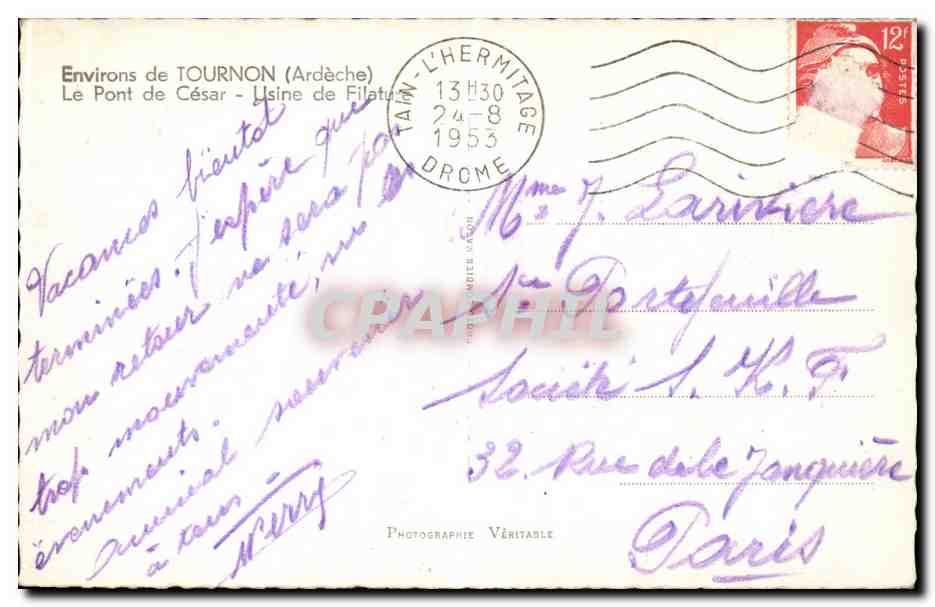 Environs de TOURNON (Ardèche)
Le Pont de César - Usine de Filature
TAIN-L'HERMITAGE
13H30
24-8
1953
DROME
12F
POSTES
Vacances bientôt
terminées. J'espère que
mon retour ne sera pas
trop mouvementé, vu les
évènements.
Amical souvenir
à tous
Mme J. Larivière
Sce Portefeuille
Société S. K. F
32 Rue de la Jonquière
Paris
CPAPHIL
PHOTOGRAPHIE VÉRITABLE